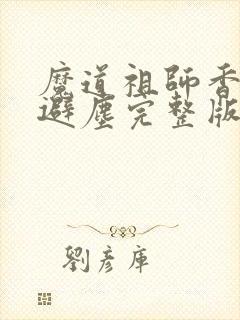 魔道祖師香
避塵完整版
劉彥庫